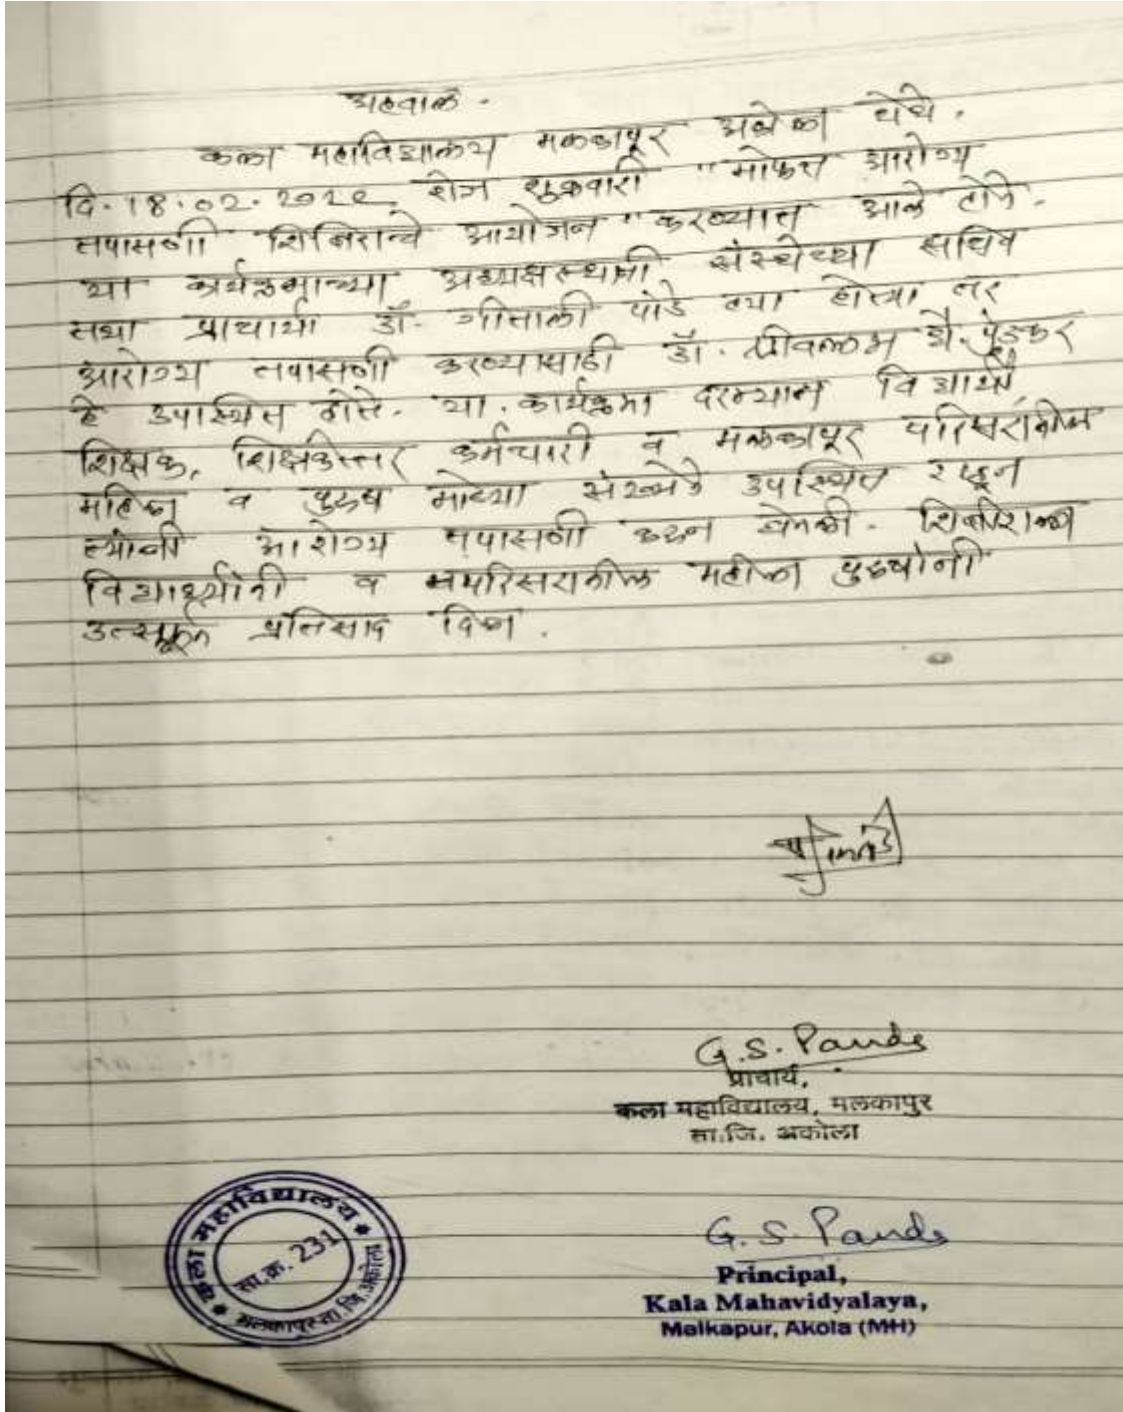 अहवाल.
कला महाविद्यालय मलकापूर अकोला येथे.
दि. 18.02.2022 रोज शुक्रवारी "मोफत आरोग्य
तपासणी शिबिराचे आयोजन" करण्यात आले होते.
या कार्यक्रमाच्या अध्यक्षस्थानी संस्थेच्या सचिव
तथा प्राचार्या डॉ. गीताली पांडे ह्या होत्या तर
आरोग्य तपासणी करण्यासाठी डॉ. श्रीवल्लभ
हे उपास्थित होते. या. कार्यक्रमा दरम्यान विद्यार्थी,
शिक्षक, शिक्षकेत्तर कर्मचारी व मलकापूर परिसरातील
महिला व पुरुष मोठ्या संख्येने उपस्थित राहून
त्यांनी आरोग्य तपासणी करून घेतली. शिबीराला
विद्यार्थ्यांनी व परिसरातील महीला पुरुषांनी
उत्स्फूर्त प्रतिसाद दिला.
G.S. Pande
प्राचार्य,
कला महाविद्यालय, मलकापुर
ता.जि. अकोला
कला महाविद्यालय
सा.क्र. 231
मलकापुर ता.जि.अकोला
G. S. Pande
Principal,
Kala Mahavidyalaya,
Malkapur, Akola (MH)